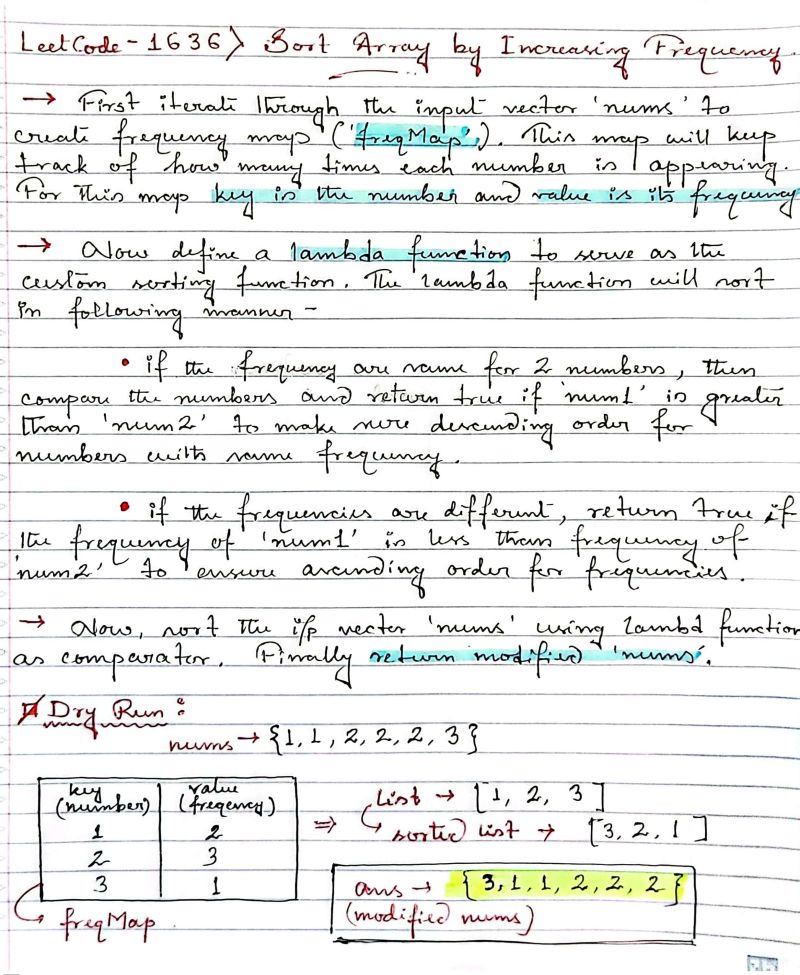 LeetCode - 1636> Sort Array by Increasing Frequency.
→ First iterate through the input vector 'nums' to
create frequency map ('freqMap'). This map will keep
track of how many times each number is appearing.
For this map key is the number and value is its frequency
→ Now define a lambda function to serve as the
custom sorting function. The lambda function will sort
in following manner -
• if the frequency are same for 2 numbers, then
compare the numbers and return true if 'num1' is greater
than 'num2' to make sure descending order for
numbers with same frequency.
• if the frequencies are different, return true if
the frequency of 'num1' is less than frequency of
'num2' to ensure ascending order for frequencies.
→ Now, sort the i/p vector 'nums' using lambd function
as comparator. Finally return modified 'nums'.
Dry Run:
nums → {1, 1, 2, 2, 2, 3}
key value
(number) (freqency)
1 2
2 3
3 1
freqMap
⇒ List → [1, 2, 3]
sorted list → [3, 2, 1]
ans → {3, 1, 1, 2, 2, 2}
(modified nums)